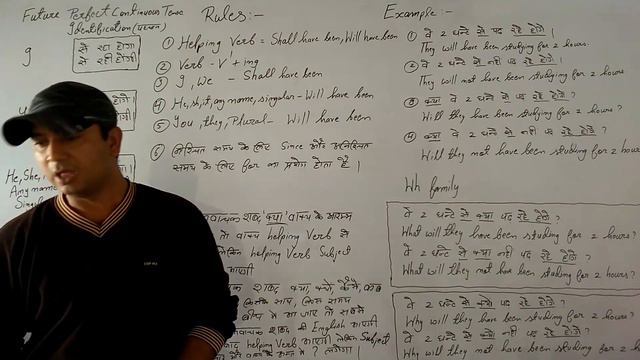 Future Perfect Continuous Tense
Identification (पहचान)
से रहा होगा
से रही होगी
I
He, She, it
Any name
Rules:-
① Helping Verb = Shall have been, Will have been
② Verb - V + ing
③ I, We - Shall have been
④ He, sh, it, any name, singular - Will have been
⑤ You, they, Plural - Will have been
⑥ निश्चित समय के लिए Since और अनिश्चित
समय के लिए for का प्रयोग होता है ।
शब्द क्या वाक्य के आरम्भ
तो helping Verb से
लेकिन helping Verb Subject
शब्द क्या, क्यों, कैसे, कब
की English
helping Verb लेकिन Subject
के अन्त में ? लगेगा ।
Example:-
① वे 2 घन्टे से पढ़ रहे होंगे ।
They will have been studying for 2 hours.
② वे 2 घन्टे से नहीं पढ़ रहे होंगे ।
They will not have been studying for 2 hours
③ क्या वे 2 घन्टे से पढ़ रहे होंगे ?
Will they have been studying for 2 hours ?
④ क्या वे 2 घन्टे से नहीं पढ़ रहे होंगे ?
Will they not have been studying for 2 hours
Wh family
वे 2 घन्टे से क्या पढ़ रहे होंगे ?
What will they have been studying for 2 hours?
वे 2 घन्टे से क्या नहीं पढ़ रहे होंगे ?
What will they not have been studying for 2 hours?
वे 2 घन्टे से क्यों पढ़ रहे होंगे ?
Why will they have been studying for 2 hours?
वे 2 घन्टे से क्यों नहीं पढ़ रहे होंगे ?
Why will they not have been studying for 2 hours